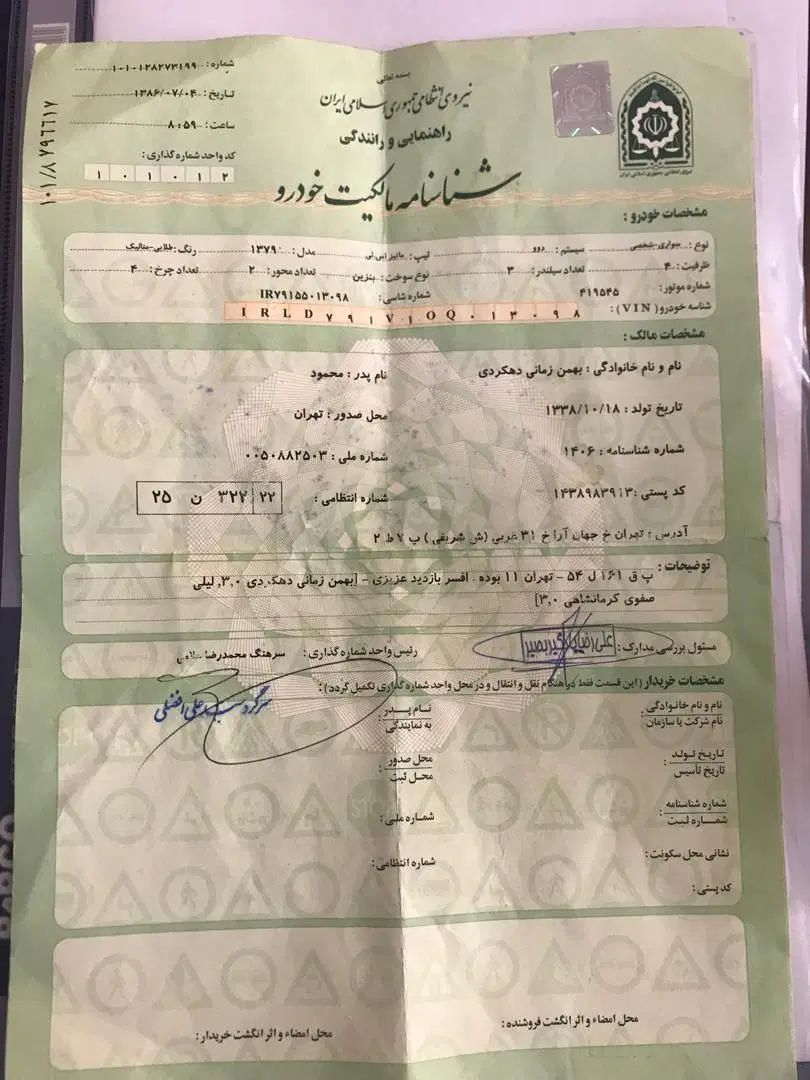 بسمه تعالی
نیروی انتظامی جمهوری اسلامی ایران
راهنمایی و رانندگی
شناسنامه مالکیت خودرو
شماره: ۱۰۱۰۱۲۸۲۷۳۱۹۹
تاریخ: ۱۳۸۶/۰۷/۰۴
ساعت: ۸:۵۹
کد واحد شماره گذاری:
۱۰۱۰۱۲
۱۰۱/۸ ۷۹۶۶۱۷
نیروی انتظامی جمهوری اسلامی ایران
مشخصات خودرو:
نوع: سواری-شخصی سیستم: دوو تیپ: ماتیز اس.تی مدل: ۱۳۷۹ رنگ: طلایی-متالیک
ظرفیت: ۴ تعداد سیلندر: ۳ نوع سوخت: بنزین تعداد محور: ۲ تعداد چرخ: ۴
شماره موتور: ۴۱۹۵۴۵ شماره شاسی: IR۷۹۱۵۵۰۱۳۰۹۸
شناسه خودرو (VIN): IRLD۷۹۱V۱OQ۰۱۳۰۹۸
مشخصات مالک:
نام و نام خانوادگی: بهمن زمانی دهکردی نام پدر: محمود
تاریخ تولد: ۱۳۳۸/۱۰/۱۸ محل صدور: تهران
شماره شناسنامه: ۱۴۰۶ شماره ملی: ۰۰۵۰۸۸۲۵۰۳
کد پستی: ۱۴۳۸۹۸۳۹۱۳ شماره انتظامی: ۲۲ ۳۲۲ ن ۲۵
آدرس: تهران خ جهان آرا خ ۳۱ غربی (ش شریفی) پ ۷ ط ۲
توضیحات: پ ق ۱۶۱ ل ۵۴ - تهران ۱۱ بوده. افسر بازدید عزیزی - [بهمن زمانی دهکردی ۳,۰, لیلی
صفوی کرمانشاهی ۳,۰]
مسئول بررسی مدارک: علی رضا رئیس واحد شماره گذاری: سرهنگ محمدرضا
سرگرد سید علی افضلی
مشخصات خریدار (این قسمت فقط در هنگام نقل و انتقال و در محل واحد شماره گذاری تکمیل گردد):
نام و نام خانوادگی نام پدر
نام شرکت یا سازمان: به نمایندگی:
تاریخ تولد محل صدور
تاریخ تأسیس: محل ثبت:
شماره شناسنامه
شماره ثبت: شماره ملی:
نشانی محل سکونت: شماره انتظامی:
کد پستی:
محل امضاء و اثر انگشت فروشنده: محل امضاء و اثر انگشت خریدار: